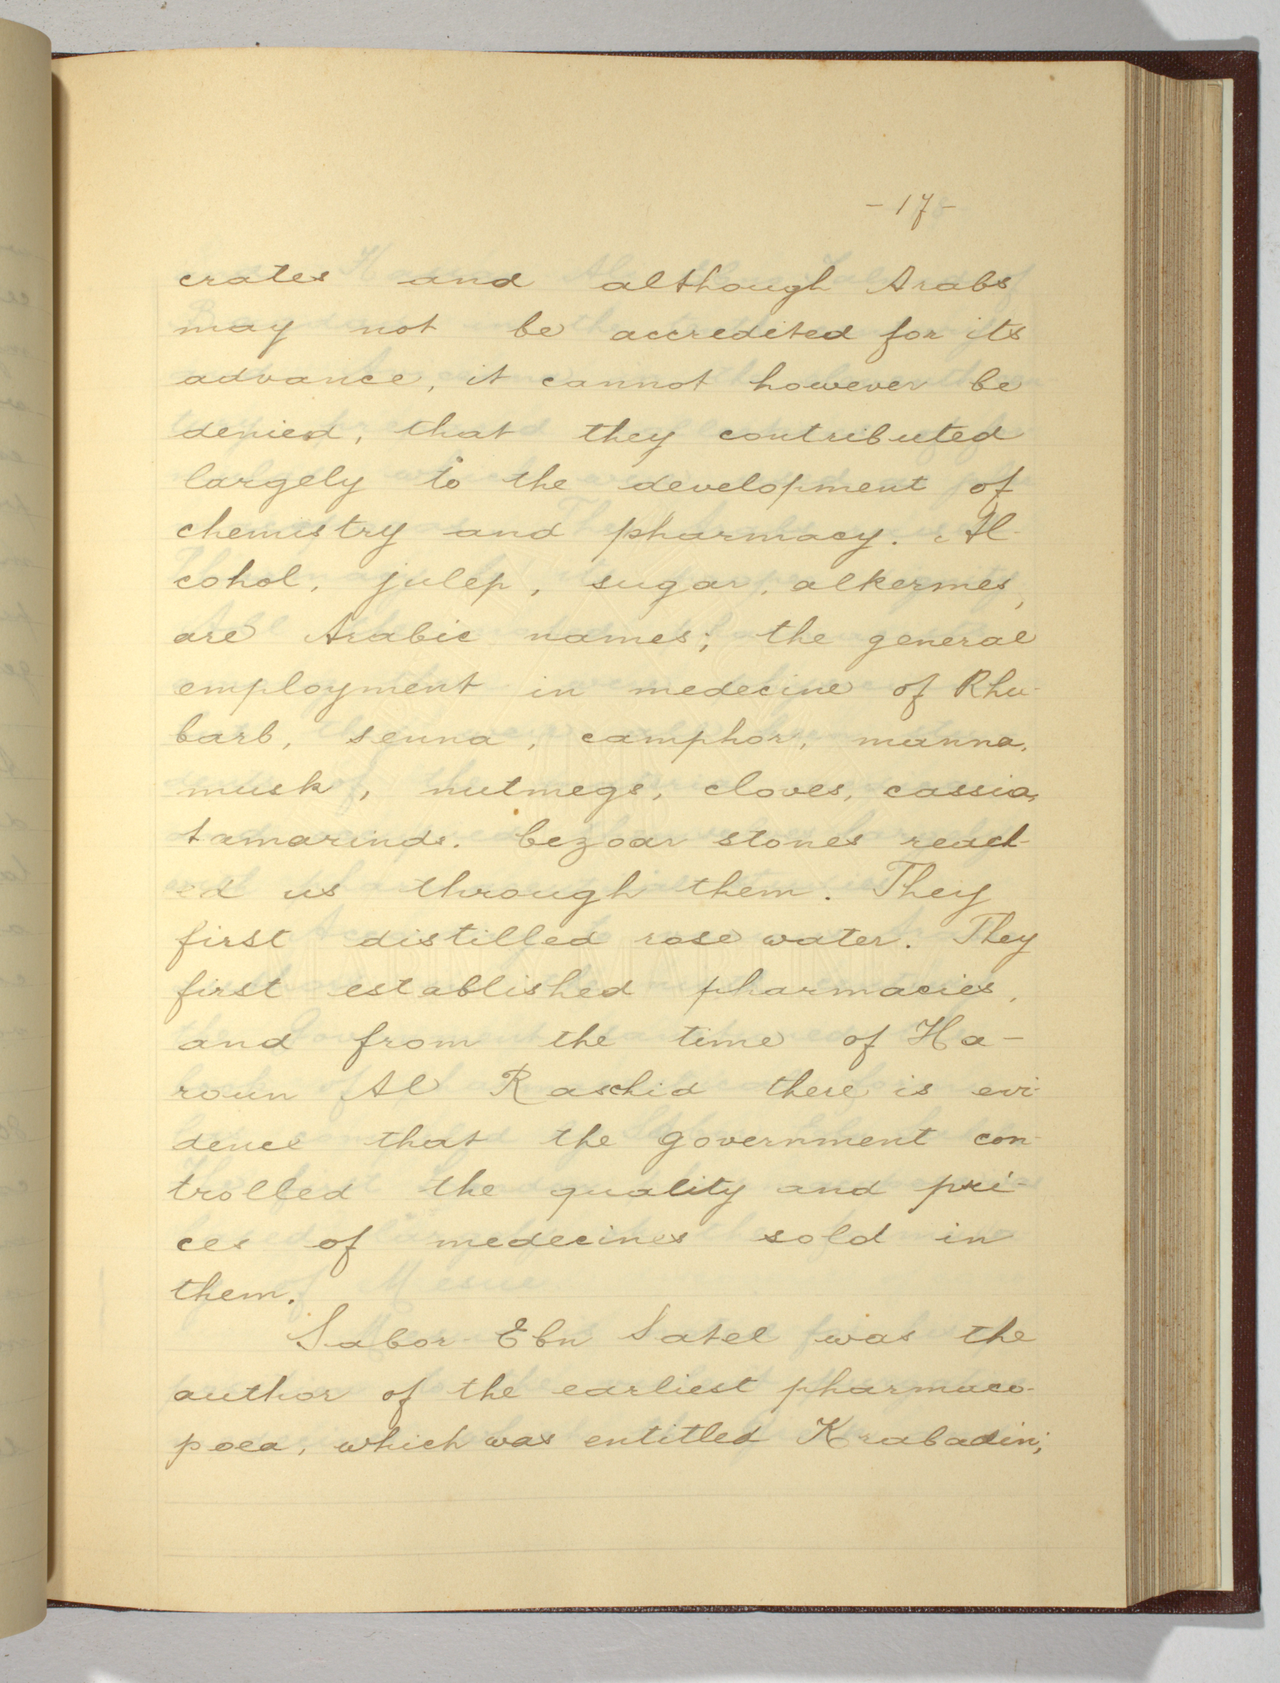 - 17 -
crates and although Arabs
may not be accredited for its
advance, it cannot however be
denied, that they contributed
largely to the development of
chemistry and pharmacy. Al-
cohol, julep, sugar, alkermes,
are Arabic names; the general
employment in medecine of Rhu-
barb, senna, camphor, manna,
musk, nutmegs, cloves, cassia,
tamarinds. bezoar stones reach-
ed us through them. They
first distilled rose water. They
first established pharmacies,
and from the time of Ha-
roun Al Raschid there is evi-
dence that the government con-
trolled the quality and pri-
ces of medecines sold in
them.
Sabor Ebn Satel was the
author of the earliest pharmaco-
poea, which was entitled Krabadin;